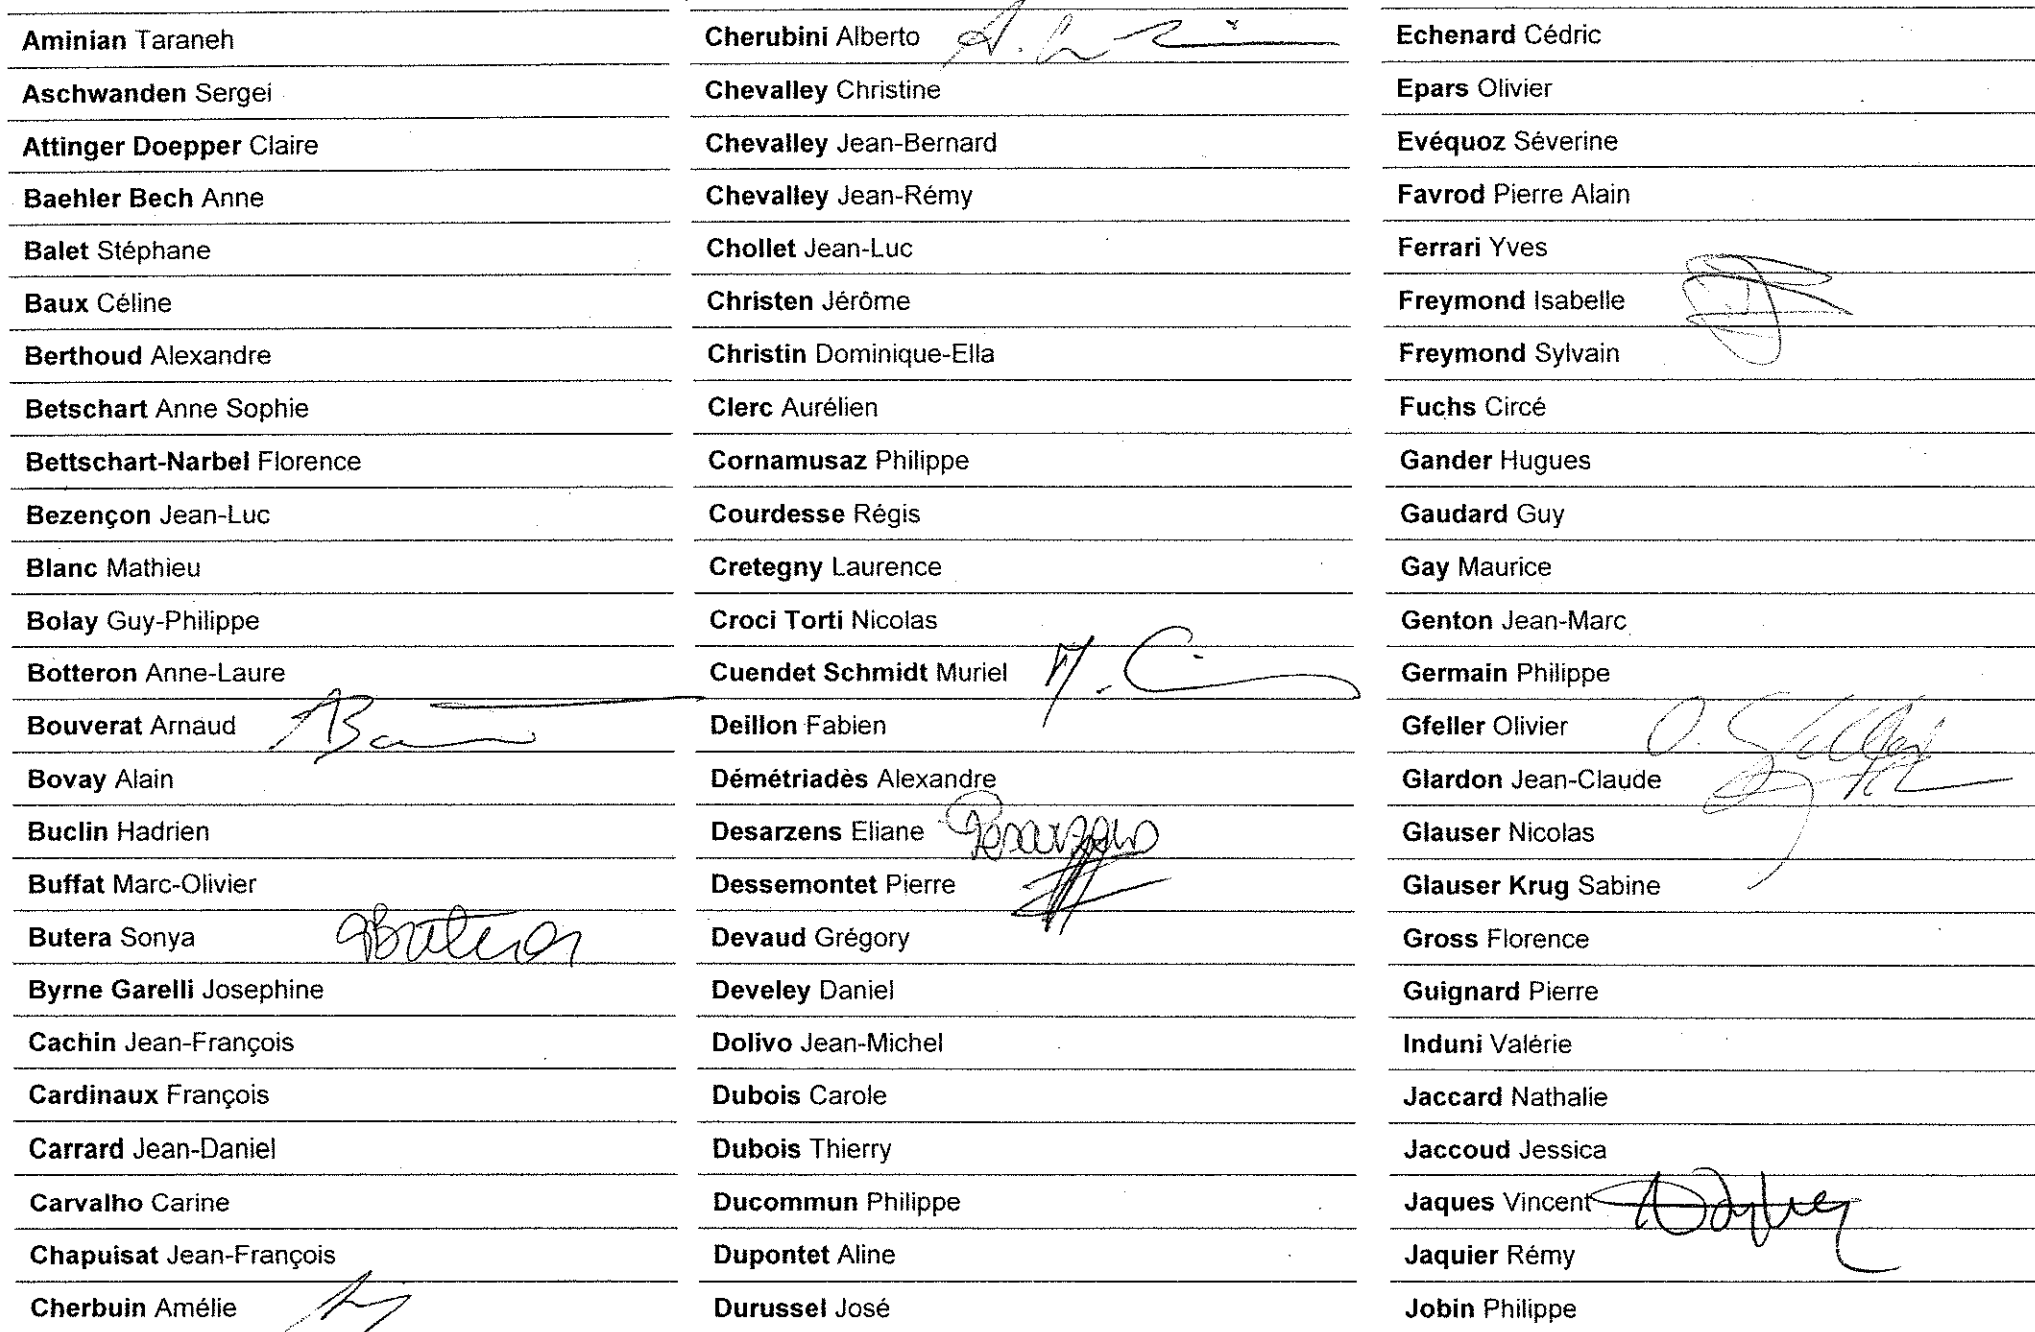 Aminian Taraneh
Aschwanden Sergei
Attinger Doepper Claire
Baehler Bech Anne
Balet Stéphane
Baux Céline
Berthoud Alexandre
Betschart Anne Sophie
Bettschart-Narbel Florence
Bezençon Jean-Luc
Blanc Mathieu
Bolay Guy-Philippe
Botteron Anne-Laure
Bouverat Arnaud
Bovay Alain
Buclin Hadrien
Buffat Marc-Olivier
Butera Sonya
Byrne Garelli Josephine
Cachin Jean-François
Cardinaux François
Carrard Jean-Daniel
Carvalho Carine
Chapuisat Jean-François
Cherbuin Amélie
Cherubini Alberto
Chevalley Christine
Chevalley Jean-Bernard
Chevalley Jean-Rémy
Chollet Jean-Luc
Christen Jérôme
Christin Dominique-Ella
Clerc Aurélien
Cornamusaz Philippe
Courdesse Régis
Cretegny Laurence
Croci Torti Nicolas
Cuendet Schmidt Muriel
Deillon Fabien
Démétriadès Alexandre
Desarzens Eliane Desarzens
Dessemontet Pierre
Devaud Grégory
Develey Daniel
Dolivo Jean-Michel
Dubois Carole
Dubois Thierry
Ducommun Philippe
Dupontet Aline
Durussel José
Echenard Cédric
Epars Olivier
Evéquoz Séverine
Favrod Pierre Alain
Ferrari Yves
Freymond Isabelle
Freymond Sylvain
Fuchs Circé
Gander Hugues
Gaudard Guy
Gay Maurice
Genton Jean-Marc
Germain Philippe
Gfeller Olivier O. Gfeller
Glardon Jean-Claude
Glauser Nicolas
Glauser Krug Sabine
Gross Florence
Guignard Pierre
Induni Valérie
Jaccard Nathalie
Jaccoud Jessica
Jaques Vincent
Jaquier Rémy
Jobin Philippe